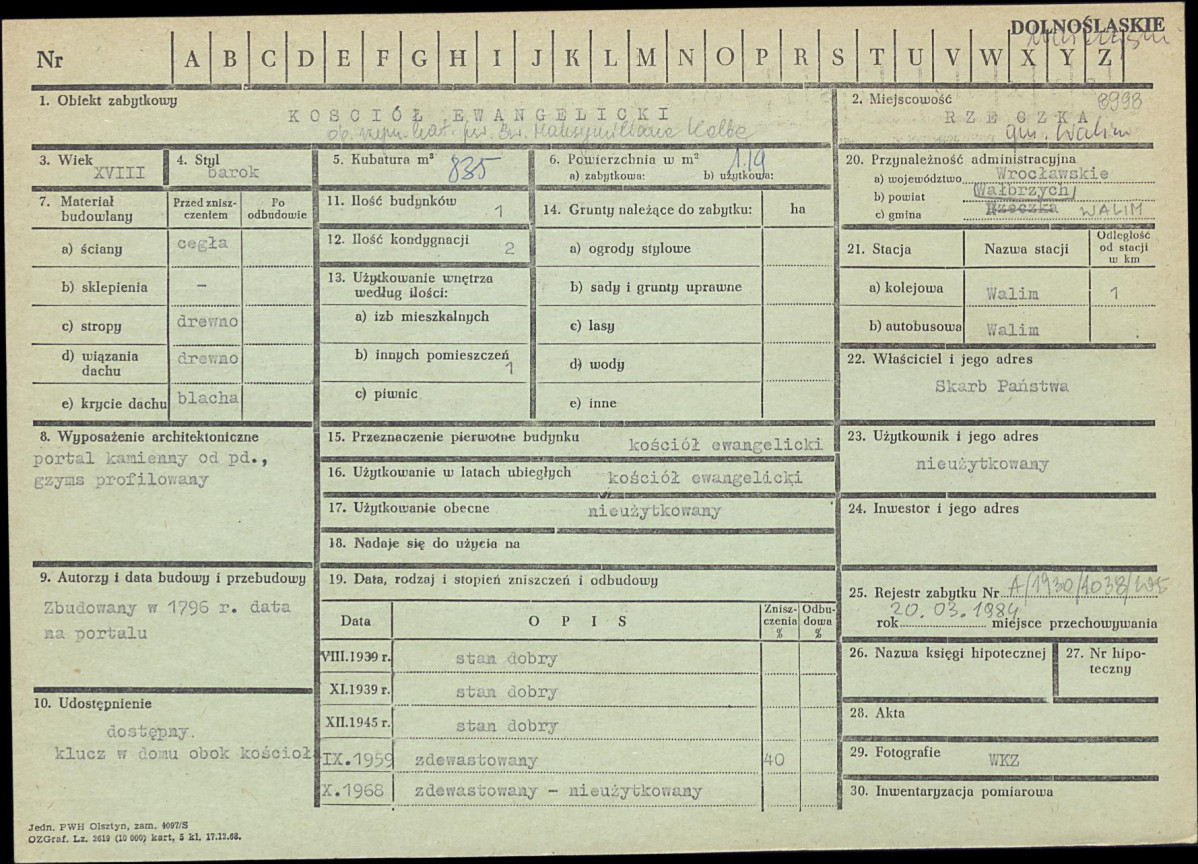 DOLNOŚLĄSKIE
Nr A B C D E F G H I J K L M N O P R S T U V W X Y Z
1. Obiekt zabytkowy
KOSCIÓŁ EWANGELICKI
ob. rzym. kat. pw. św. Maksymiliana Kolbe
2. Miejscowość 8998
RZECZKA
gm. Walim
3. Wiek
XVIII
4. Styl
barok
5. Kubatura m³
835
6. Powierzchnia w m²
119
a) zabytkowa: b) użytkowa:
7. Materiał budowlany
Przed znisz-
czeniem
Po
odbudowie
a) ściany cegła
b) sklepienia –
c) stropy drewno
d) wiązania
dachu drewno
e) krycie dachu blacha
11. Ilość budynków
1
12. Ilość kondygnacji
2
13. Użytkowanie wnętrza
według ilości:
a) izb mieszkalnych
b) innych pomieszczeń
1
c) piwnic
14. Grunty należące do zabytku: ha
a) ogrody stylowe
b) sady i grunty uprawne
c) lasy
d) wody
e) inne
20. Przynależność administracyjna
a) województwo Wrocławskie
b) powiat Wałbrzych
c) gmina Rzeczka WALIM
21. Stacja Nazwa stacji
Odległość
od stacji
w km
a) kolejowa Walim 1
b) autobusowa Walim
22. Właściciel i jego adres
Skarb Państwa
8. Wyposażenie architektoniczne
portal kamienny od pd.,
gzyms profilowany
15. Przeznaczenie pierwotne budynku kościół ewangelicki
16. Użytkowanie w latach ubiegłych kościół ewangelicki
17. Użytkowanie obecne nieużytkowany
18. Nadaje się do użycia na
23. Użytkownik i jego adres
nieużytkowany
24. Inwestor i jego adres
9. Autorzy i data budowy i przebudowy
Zbudowany w 1796 r. data
na portalu
10. Udostępnienie
dostępny.
klucz w domu obok kościoł
19. Data, rodzaj i stopień zniszczeń i odbudowy
Data O P I S
Znisz-
czenia
%
Odbu-
dowa
%
VIII.1939 r. stan dobry
XI.1939 r. stan dobry
XII.1945 r. stan dobry
IX.1959 zdewastowany 40
X.1968 zdewastowany – nieużytkowany
25. Rejestr zabytku Nr A/1930/1038/WŁ
20. 03. 1984
rok miejsce przechowywania
26. Nazwa księgi hipotecznej
27. Nr hipo-
teczny
28. Akta
29. Fotografie WKZ
30. Inwentaryzacja pomiarowa
Jedn. PWH Olsztyn, zam. 4097/S
OZGraf. Lz. 2619 (10 000) kart, 5 kl. 17.12.68.